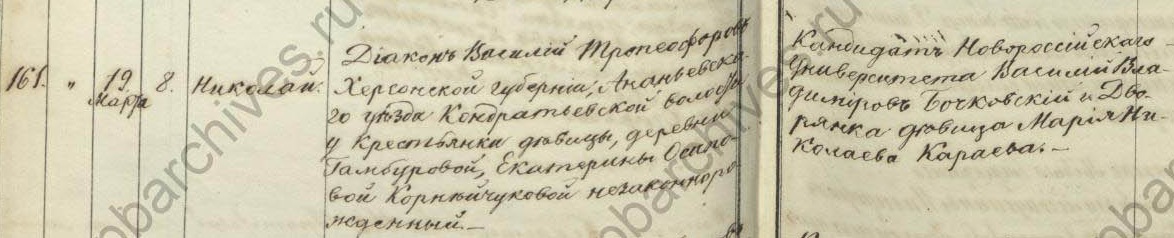 161. " 19 Марта 8. Николай.
Діаконъ Василій Тропеофоровъ
Херсонской губерніи, Ананьевска-
го уѣзда Кондратьевской волости
у Крестьянки дѣвицы, деревни
Гамбуровой, Екатерины Осипо-
вой Корнѣйчуковой незаконноро-
жденный.—
Кандидатъ Новороссійскаго
Университета Василій Вла-
диміровъ Бочковскій и Дво-
рянка дѣвица Марія Ни-
колаева Караева.—
obarchives.ru
obarchives.ru
obarchives